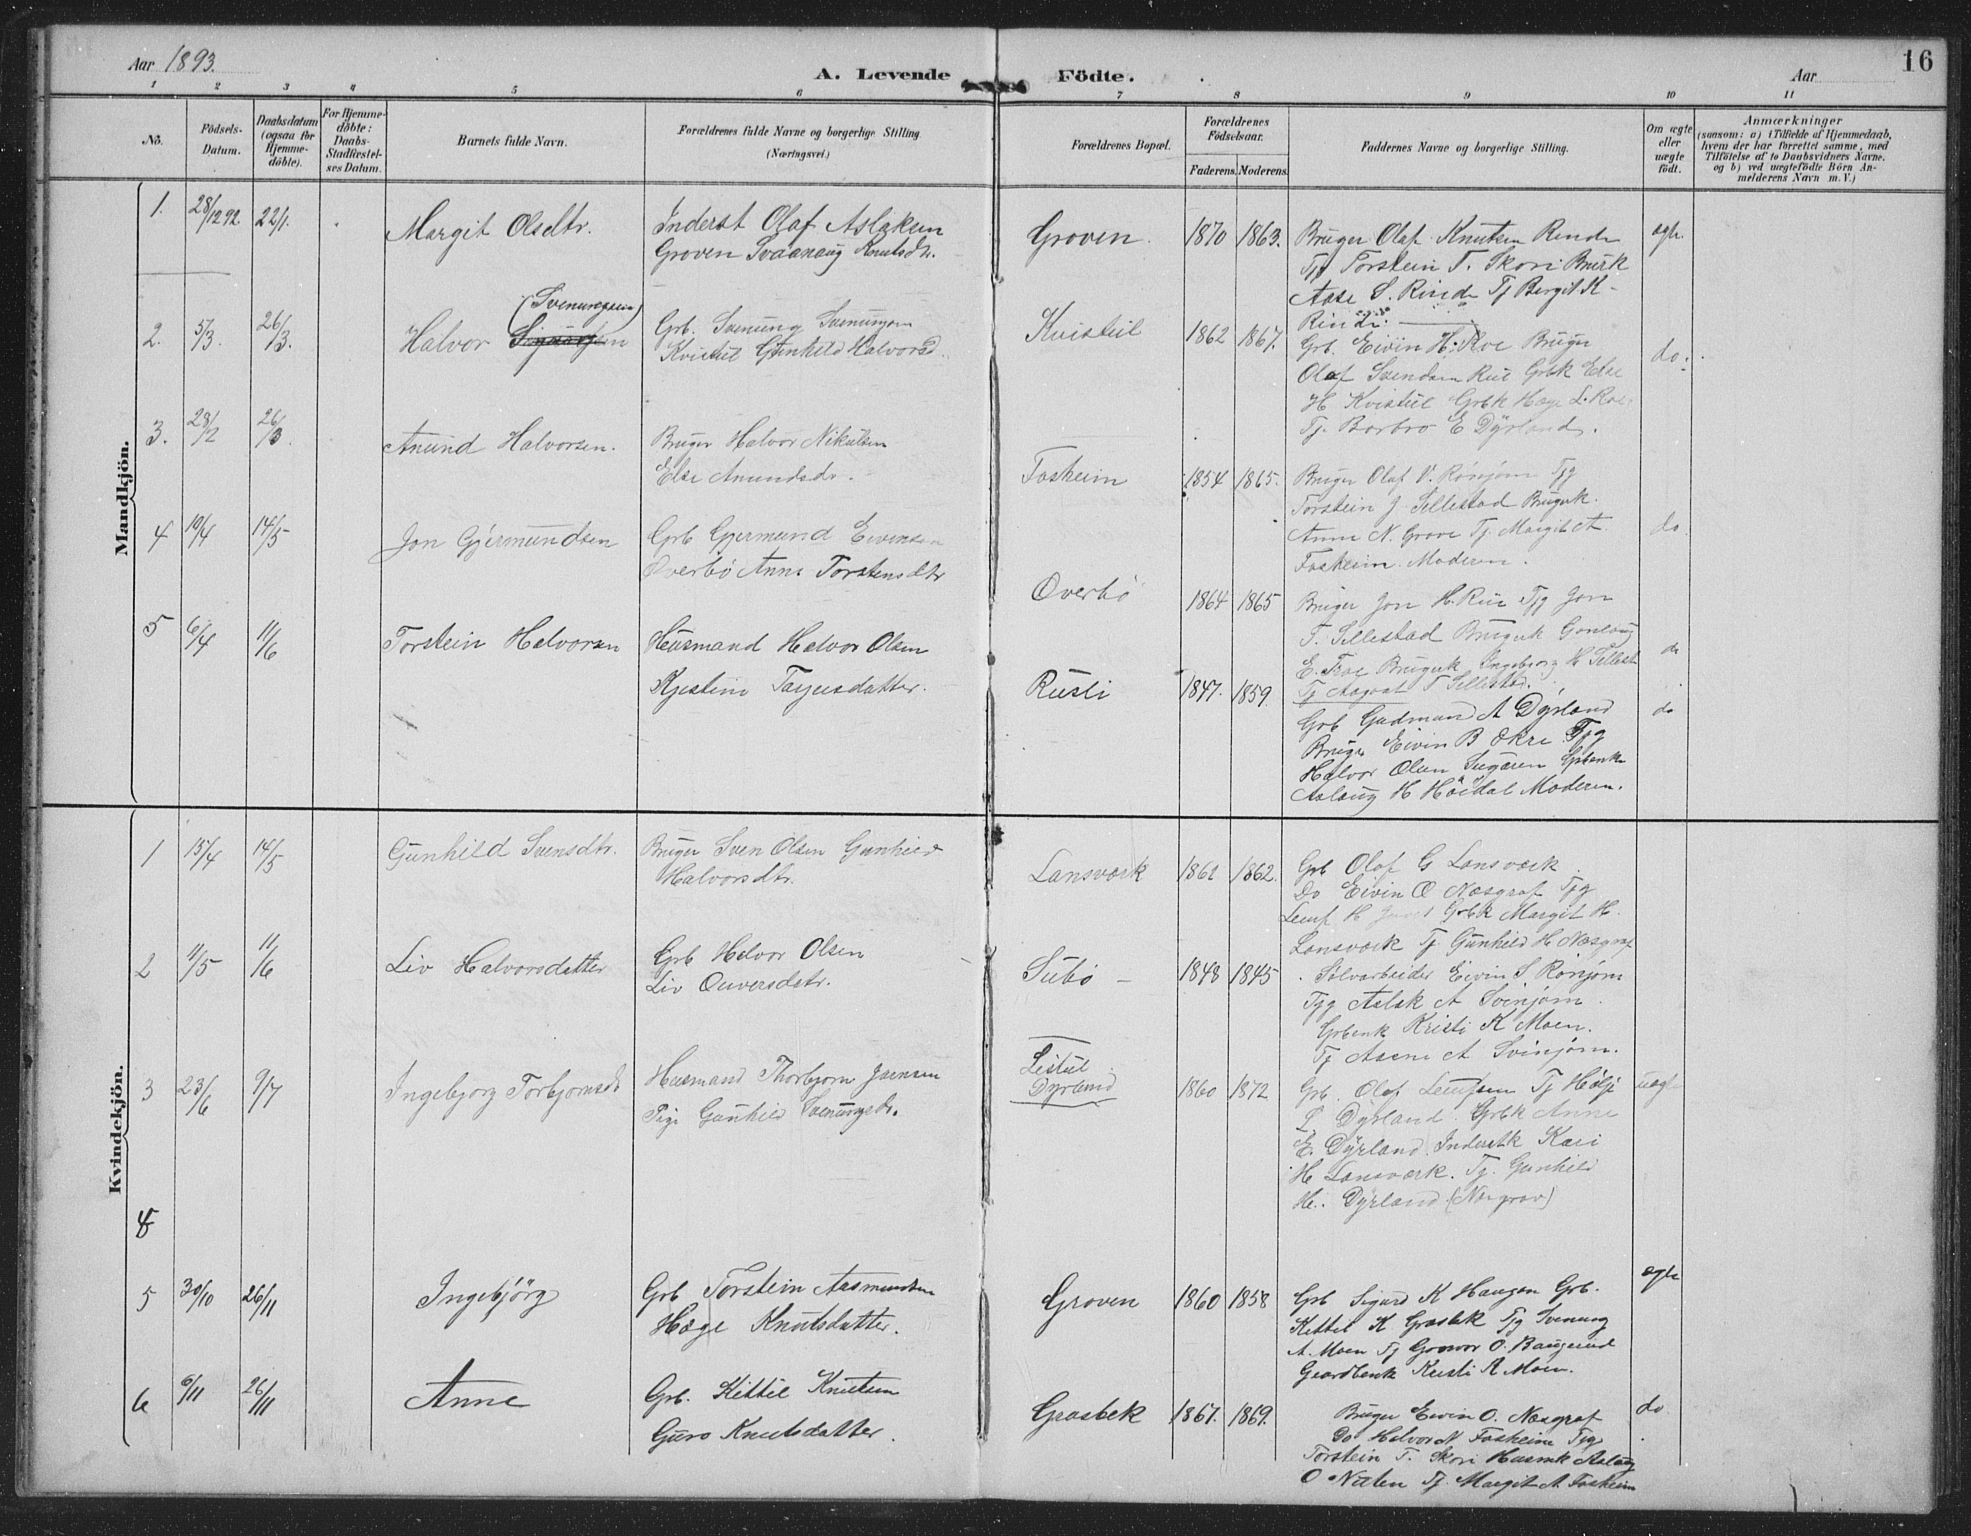 Aar 1893.
A. Levende Födte.
Aar
16
1 2 3 4 5 6 7 8 9 10 11
No.
Födsels-Datum.
Daabsdatum (ogsaa for Hjemme-döbte).
For Hjemme-döbte: Daabs-Stadfæstel-ses Datum.
Barnets fulde Navn.
Forældrenes fulde Navne og borgerlige Stilling.
(Næringsvei.)
Forældrenes Bopæl.
Forældrenes Födselsaar.
Faderens. Moderens.
Faddernes Navne og borgerlige Stilling.
Om ægte eller uægte födt.
Anmærkninger
(saasom: a) i Tilfælde af Hjemmedaab,
hvem der har forrettet samme, med
Tilföielse af to Daabsvidners Navne,
og b) ved uægtefödte Börn An-
melderens Navn m. V.)
Mandkjön.
1. 28/12 92. 22/1. Margit Olsdtr. Inderst Olaf Aslaksen
Groven Svaanaug Knutsdr.
Groven. 1870 1863. Bruger Olaf Knutsen Rinde ægte.
Tjg Torstein T. Skori Brugk
Aase S. Rinde Tj Bergit K-
Rinde.
2. 5/3. 26/3. Halvor (Svenungsen) Grb. Svenung Svenungsen
Kvistul Gunhild Halvorsd.
Kvistul 1862 1867. Grb. Eivin H. Roe Bruger do.
Olaf Svendsen Rue Grbk Else
H Kvistul Grbk Hæge L. Roe
Tj. Barbro E Dyrland.
3. 28/2 26/3. Anund Halvorsen. Bruger Halvor Nikulsen
Else Anundsdr.
Fosheim 1854 1865. Bruger Olaf V. Rönjom Tjg
Torstein J. Sillestad Brugerk.
Anne N. Grove Tj. Margit A. do
Fosheim. Moderen.
4 10/4 14/5 Jon Gjermundsen Grb Gjermund Eivindsen
Overbö Anne Torsteinsdtr
Overbö 1864 1865 Bruger Jon H. Rue Tjg Jon
T. Sillestad Brugerk Gonlaug
E. Troe Brugerk Ingeborg H Sillest. do
Tj Aagot T Sillestad.
5 6/4 11/6 Torstein Halvorsen Husmand Halvor Olsen
Kjestine Tarjeisdatter.
Rusli 1847. 1859. Grb Gudmund A Dyrland do
Bruger Eivin B Økre Tjg
Halvor Olsen Sugaren Grbenke
Aslaug H Höidal Moderen.
Kvindekjön.
1 15/4 14/5 Gunhild Svensdtr. Bruger Sven Olsen Gunhild
Halvorsdtr.
Lansværk 1861 1862. Grb Olaf G Lansværk
Do Eivin O Næsgraf Tjg
H Grbk Margit H.
Lansværk Tj Gunhild H Næsgraf
2 11/5 11/6 Liv Halvorsdatter Grb Halvor Olsen
Liv
Subö – 1848 1845 Sölvarbeider Eivin S. Rönjom
Tjg Aslak A Svinjom.
Grbenk Kristi K Moen.
Tj Aasne A Svinjom.
3 23/6 9/7 Ingebjorg Torbjornsdr Husmand Thorbjorn Joensen
Pige Gunhild Svenungsdr.
Listul
Dyrland 1860 1872 Grb. Olaf Leufsen Tj Hölje uægte
L Dyrland Grbk Anne
E. Dyrland Inderstk Kari
H Lansværk. Tj. Gunhild
H. Dyrland (Næsgrav)
4
5 30/10 26/11 Ingebjörg Grb Torstein Aasmundsen
Hæge Knutsdatter.
Groven 1860 1858 Grb Sigurd K Haugen Grb. ægte
Kittel K Grasbek Tjg Svenung
A. Moen Tj Gonvor O. Baugerud
Gaardbenk Kristi A Moen.
6 6/11 26/11 Anne Grb. Kittil Knutsen
Guro Knutsdatter.
Grasbek 1867. 1869. Bruger Eivin O. Næsgraf do.
Do Halvor N Fosheim Tjg
Torstein T. Skori Husmk Aslaug
O Nuten Tj. Margit A Fosheim